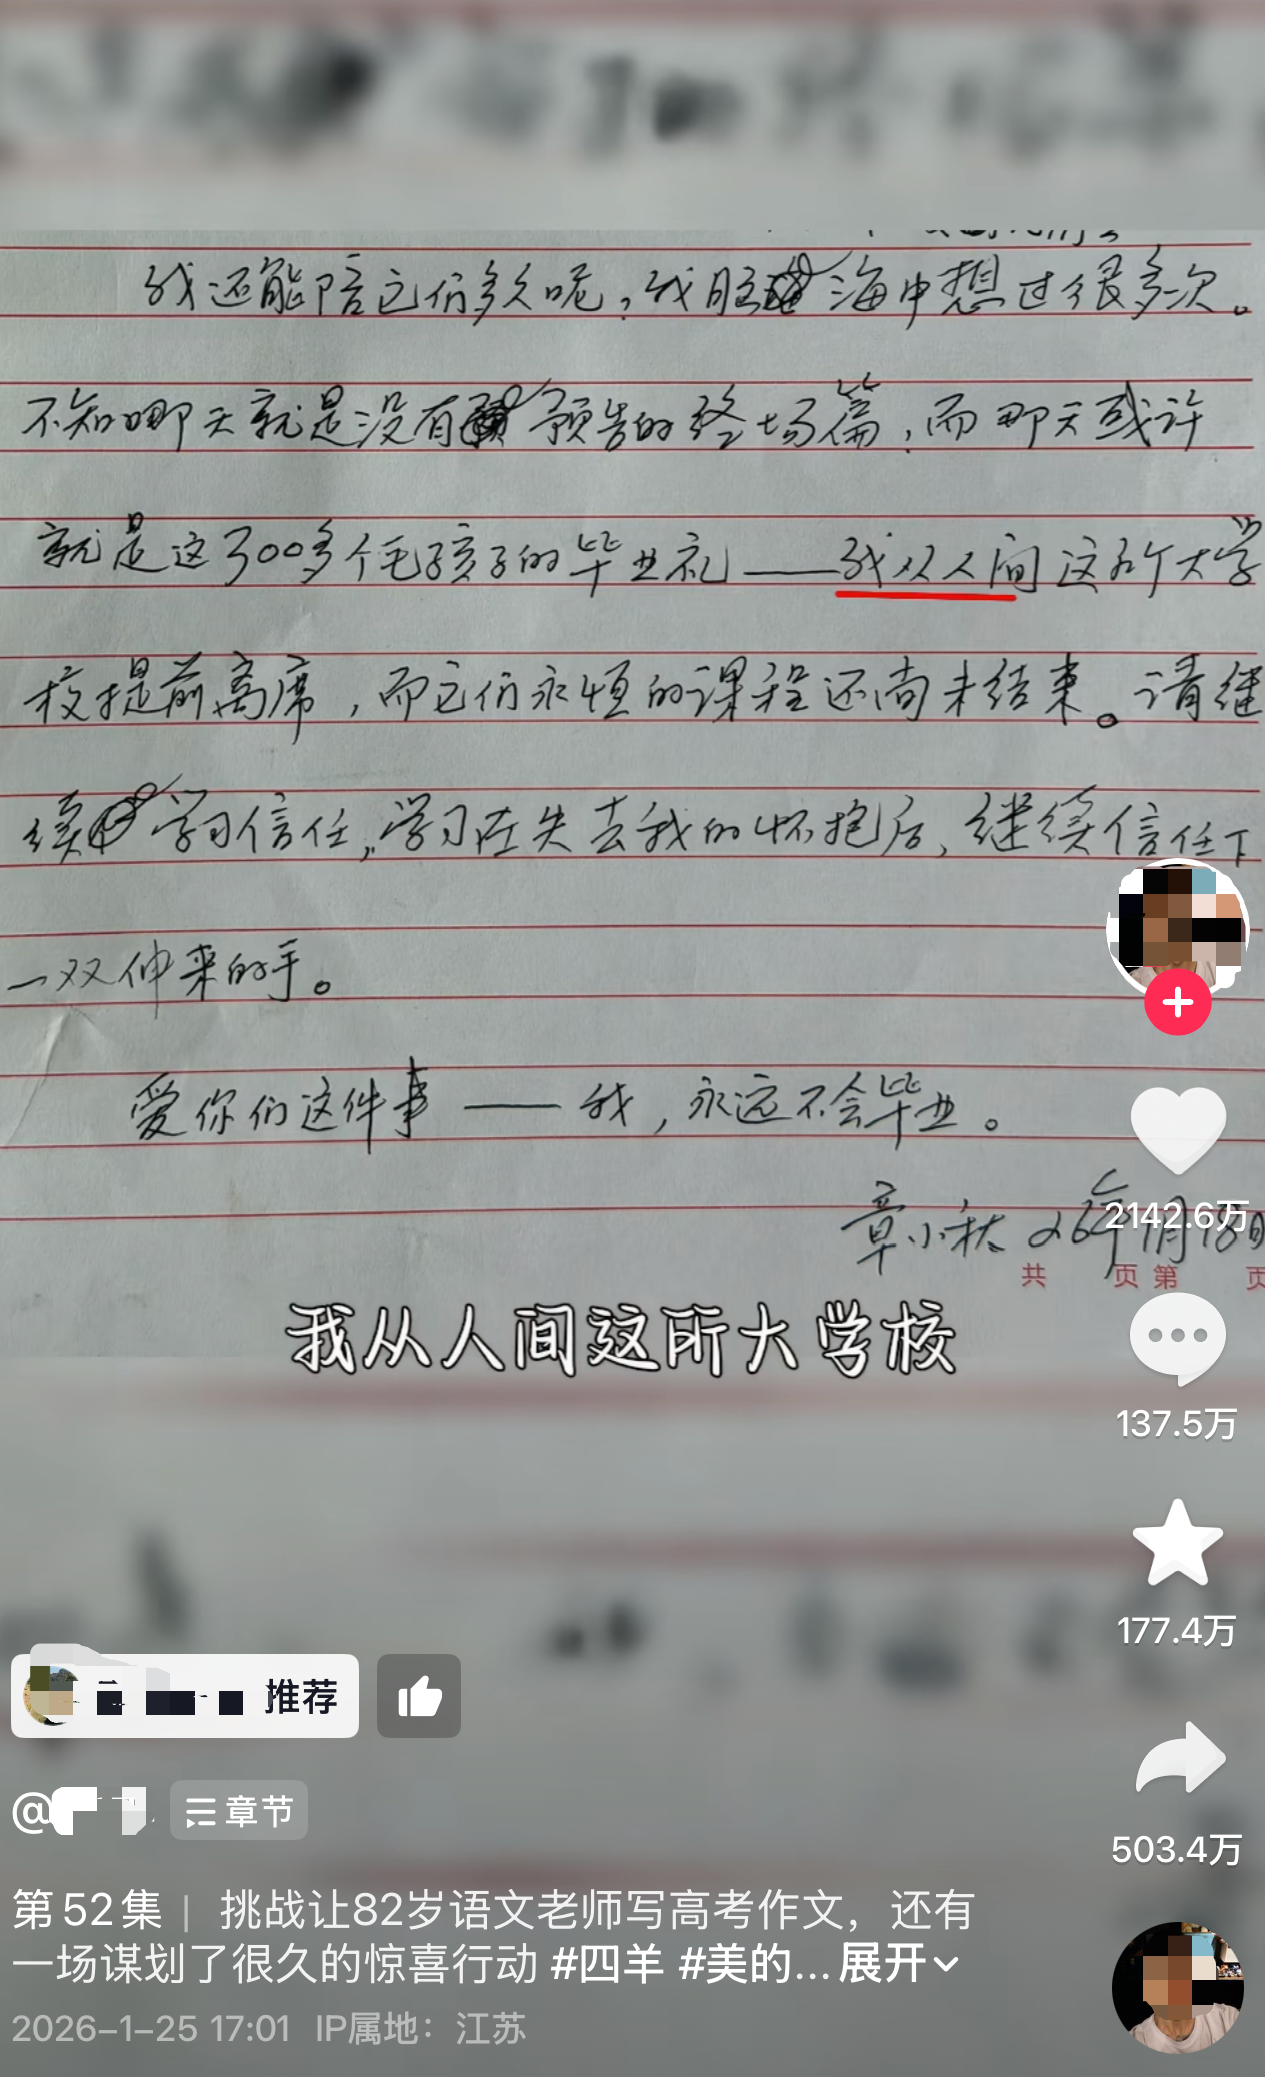 我还能陪它们多久呢，我脑海中想过很多次。
不知哪天就是没有预告的终场篇，而那天或许
就是这300多个毛孩子的毕业礼——我从人间这所大学
校提前离席，而它们永恒的课程还尚未结束。请继
续学习信任，学习在失去我的怀抱后，继续信任下
一双伸来的手。
爱你们这件事——我，永远不会毕业。
章小秋 26年1月18日
共 页 第 页
我从人间这所大学校
2142.6万
137.5万
177.4万
503.4万
推荐
@
章节
第52集 | 挑战让82岁语文老师写高考作文，还有
一场谋划了很久的惊喜行动 #四羊 #美的... 展开
2026-1-25 17:01 IP属地：江苏